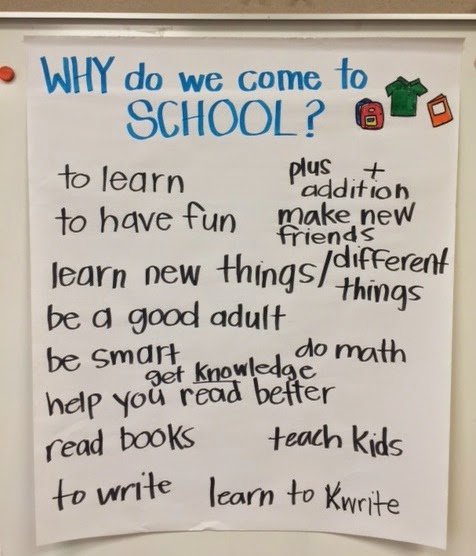 WHY do we come to
SCHOOL?
to learn
plus +
addition
to have fun
make new
friends
learn new things/different
things
be a good adult
be smart
do math
get knowledge
help you read better
read books
teach kids
to write
learn to Kwrite